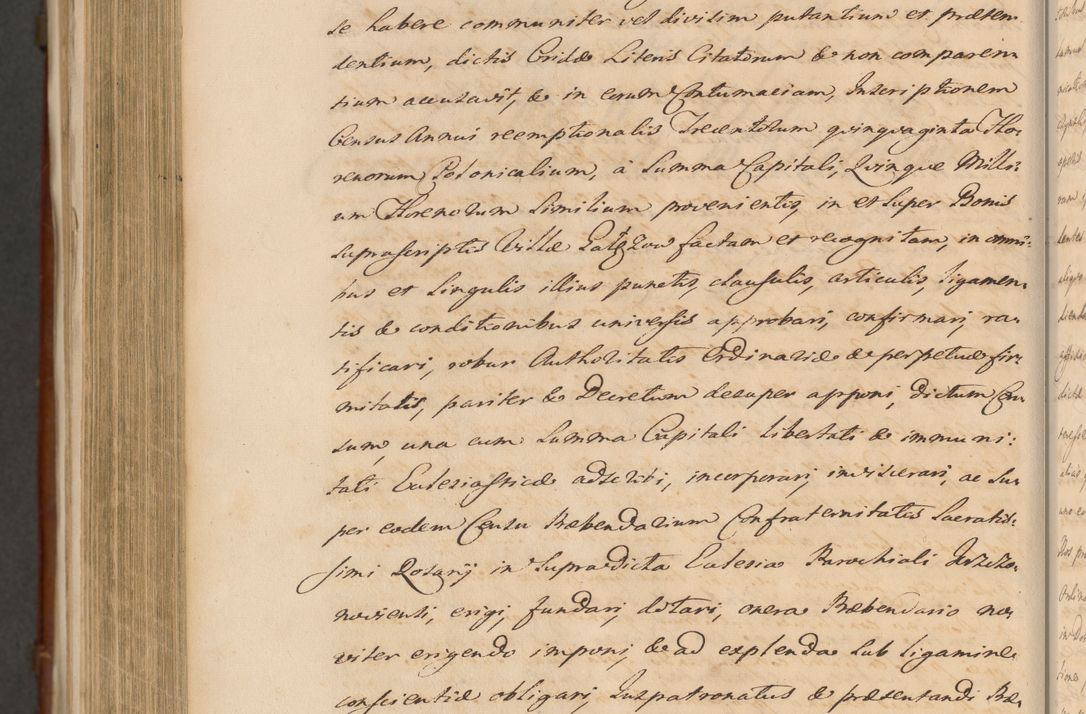 se habere communiter vel divisim putantium et præten-
dentium, dictis Cridæ Literis Citatorum & non comparen-
tium accusavit, & in eorum Contumaciam, Inscriptionem
Census Annui reemptionalis Trecentorum quinquaginta Flo-
renorum Polonicalium, à Summa Capitali, Quinque Milli:
um Florenorum Similium provenientis, in et Super Bonis
Suprascriptis Villæ factam et recognitam, in omni:
bus et Singulis illius punctis, clausulis, articulis, ligamen-
tis & conditionibus universis approbari, confirmari, ra-
tificari, robur Authoritatis Ordinariæ & perpetuæ fir-
mitatis, pariter & Decretum desuper apponi, dictum Cen-
sum, una cum Summa Capitali libertati & immuni:
tati Eclesiasticæ adscribi, incorporari, inviscerari, ac Su-
per eodem Censu Præbendarium Confraternitatis Sacratis:
simi Rosarij in Supradicta Eclesia Parochiali
noviensi, erigi, fundari, dotari, onera Præbendario no-
viter erigendo imponi, & ad explenda Sub ligamine
conscientiæ obligari, Juspatronatus & præsentandi Præ-